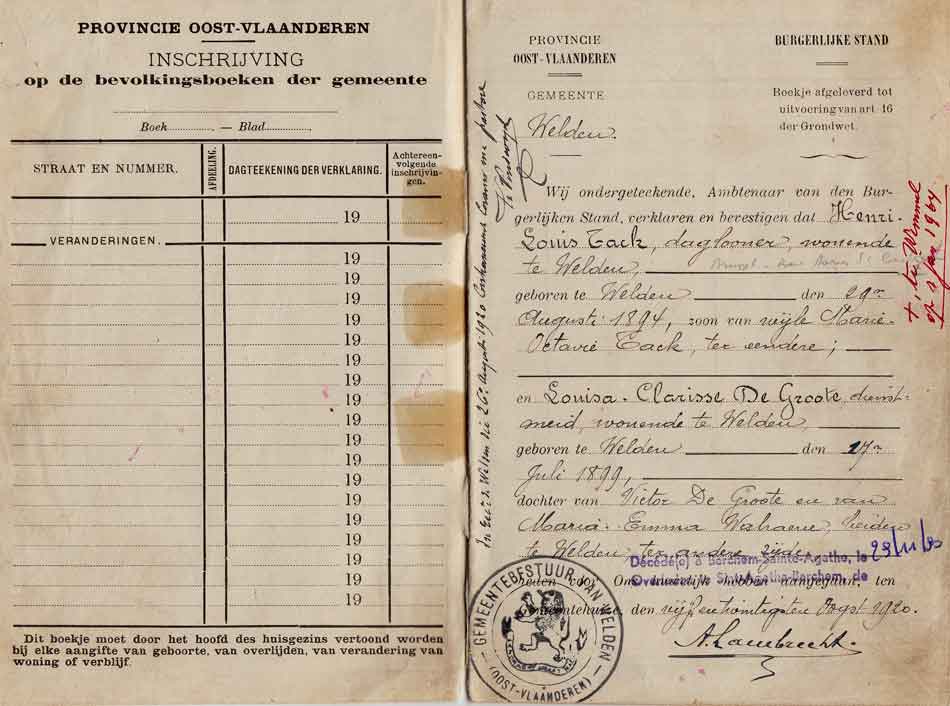 PROVINCIE OOST-VLAANDEREN
INSCHRIJVING
op de bevolkingsboeken der gemeente
Boek — Blad
STRAAT EN NUMMER.
AFDEELING.
DAGTEEKENING DER VERKLARING.
Achtereen-
volgende
inschrijvin-
gen.
19
VERANDERINGEN.
19
19
19
19
19
19
19
19
19
19
19
19
19
19
19
19
19
19
Dit boekje moet door het hoofd des huisgezins vertoond worden
bij elke aangifte van geboorte, van overlijden, van verandering van
woning of verblijf.
PROVINCIE
OOST-VLAANDEREN
GEMEENTE
Welden.
BURGERLIJKE STAND
Boekje afgeleverd tot
uitvoering van art 16
der Grondwet.
Wij ondergeteekende, Ambtenaar van den Bur-
gerlijken Stand, verklaren en bevestigen dat Henri-
Louis Tack, daglooner, wonende
te Welden,
geboren te Welden den 29n
Augusti 1894, zoon van wijle Marie-
Octavie Tack, ter eendere;
en Louisa-Clarisse De Groote, dienst-
meid, wonende te Welden,
geboren te Welden den 27n
Juli 1899,
dochter van Victor De Groote en van
Maria-Emma beiden
te Welden, ter andere zijde,
Décédé(e) à Berchem-Sainte-Agathe, le 23/11/
Overleden te Sint-Agatha-Berchem, de
heden voor Ons hebben aangegaan, ten
Gemeentehuize, den vijf en twintigsten Oogst 1920.
A. Lambrecht.
GEMEENTEBESTUUR VAN WELDEN
(OOST-VLAANDEREN)
die 26a Augusti 1920 me pastore
† te Wemmel
op 2 jan 1964